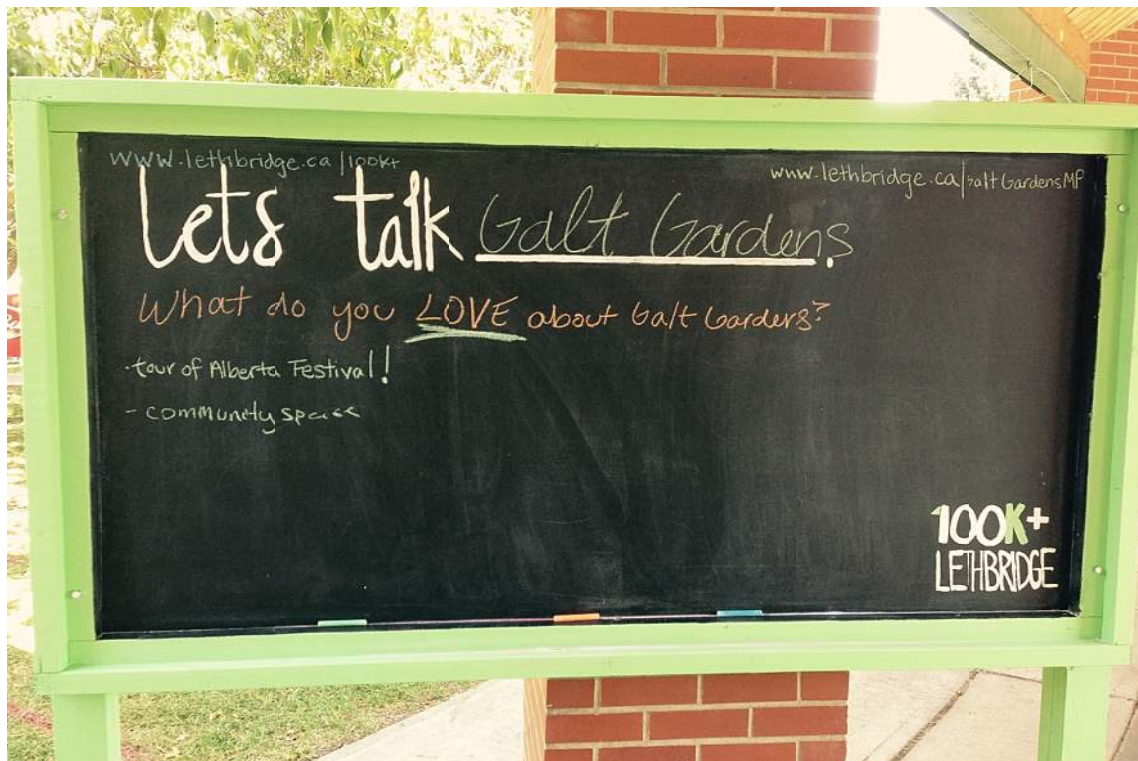 www.lethbridge.ca/100k+
www.lethbridge.ca/GaltGardensMP
lets talk Galt Gardens.
What do you LOVE about Galt Gardens?
·tour of Alberta Festival!
- community space
100K+
LETHBRIDGE